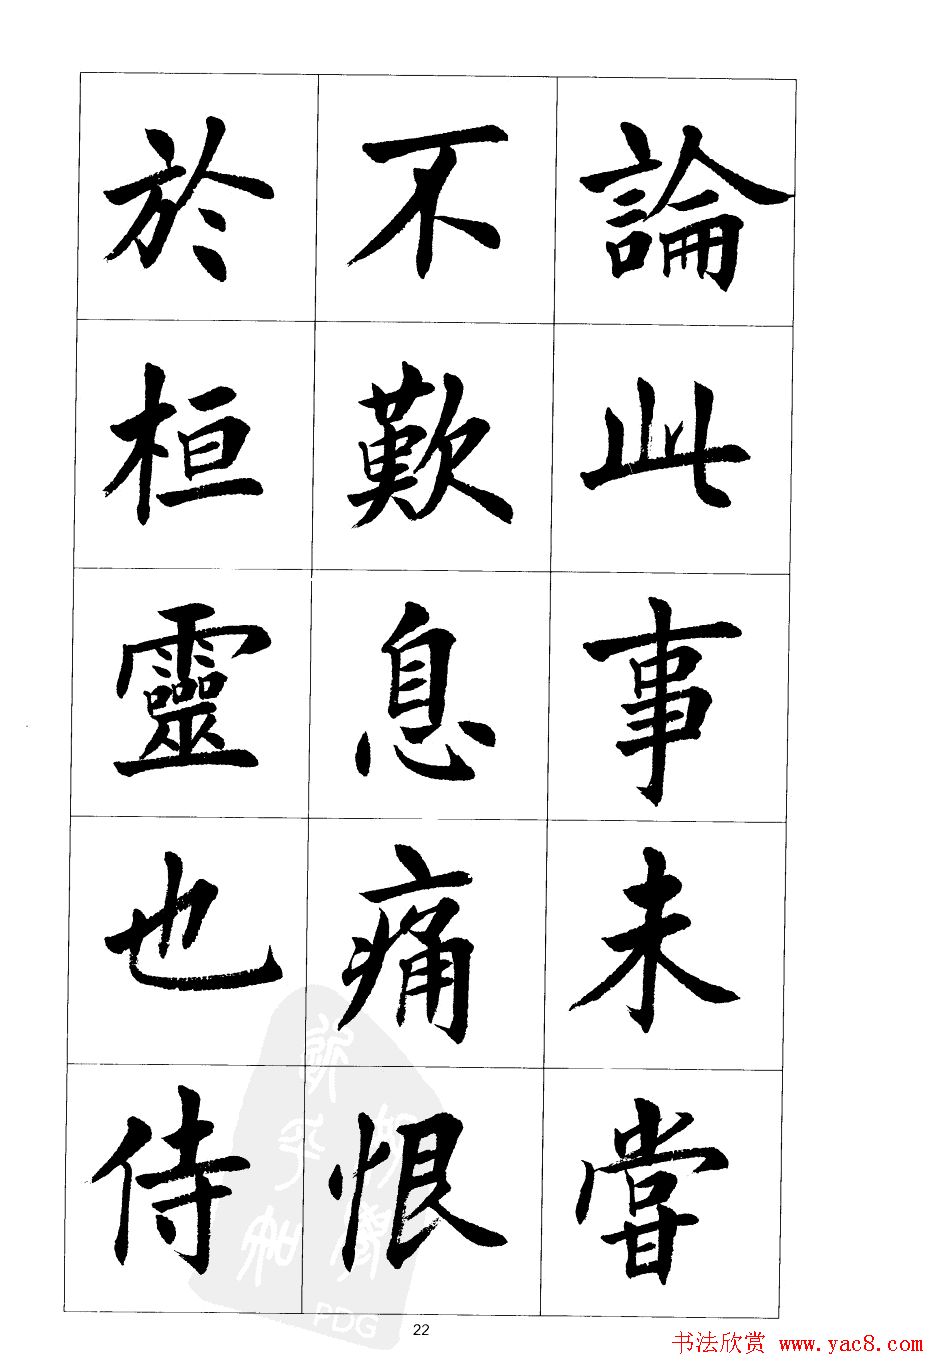 論此事未嘗
不歎息痛恨
於桓靈也侍
22
PDG
书法欣赏 www.yac8.com